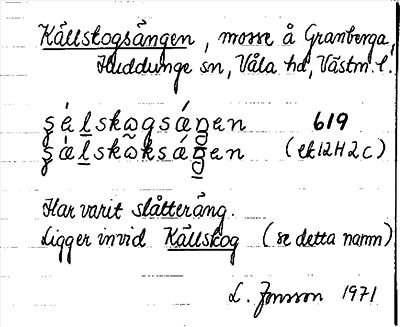 Källskogsängen, mosse å Granberga,
Huddunge sn, Våla hd, Västm. l.
619
(ek 12H2c)
Har varit slåtteräng.
Ligger invid Källskog (se detta namn)
L. Jonsson 1971